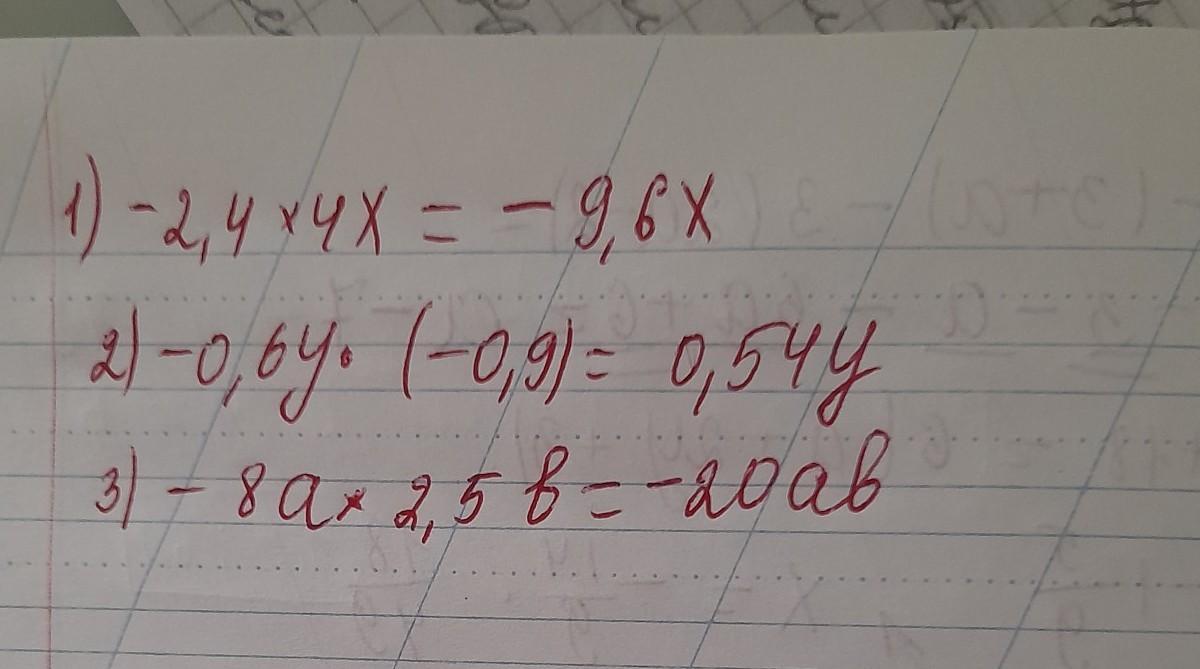 1) -2,4 × 4x = -9,6x
2) -0,6y · (-0,9) = 0,54y
3) -8a × 2,5 b = -20ab